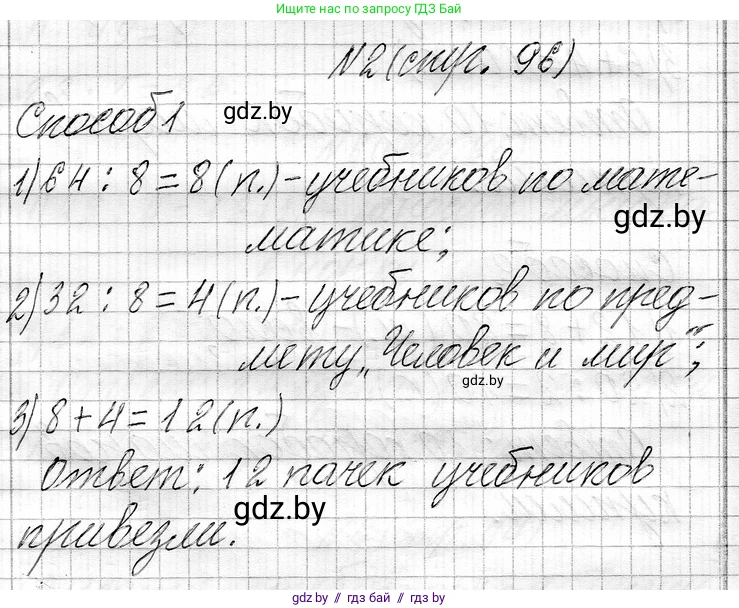 Решено на портале ГДЗ Бай
№2 (стр. 96)
Способ 1
gdz.by
1) 64 : 8 = 8 (п.) – учебников по мате-
gdz.by
матике;
2) 32 : 8 = 4 (п.) – учебников по пред-
мету „Человек и мир“;
gdz.by
3) 8 + 4 = 12 (п.)
Ответ: 12 пачек учебников
gdz.by
привезли.
gdz.by // гдз бай // гдз by